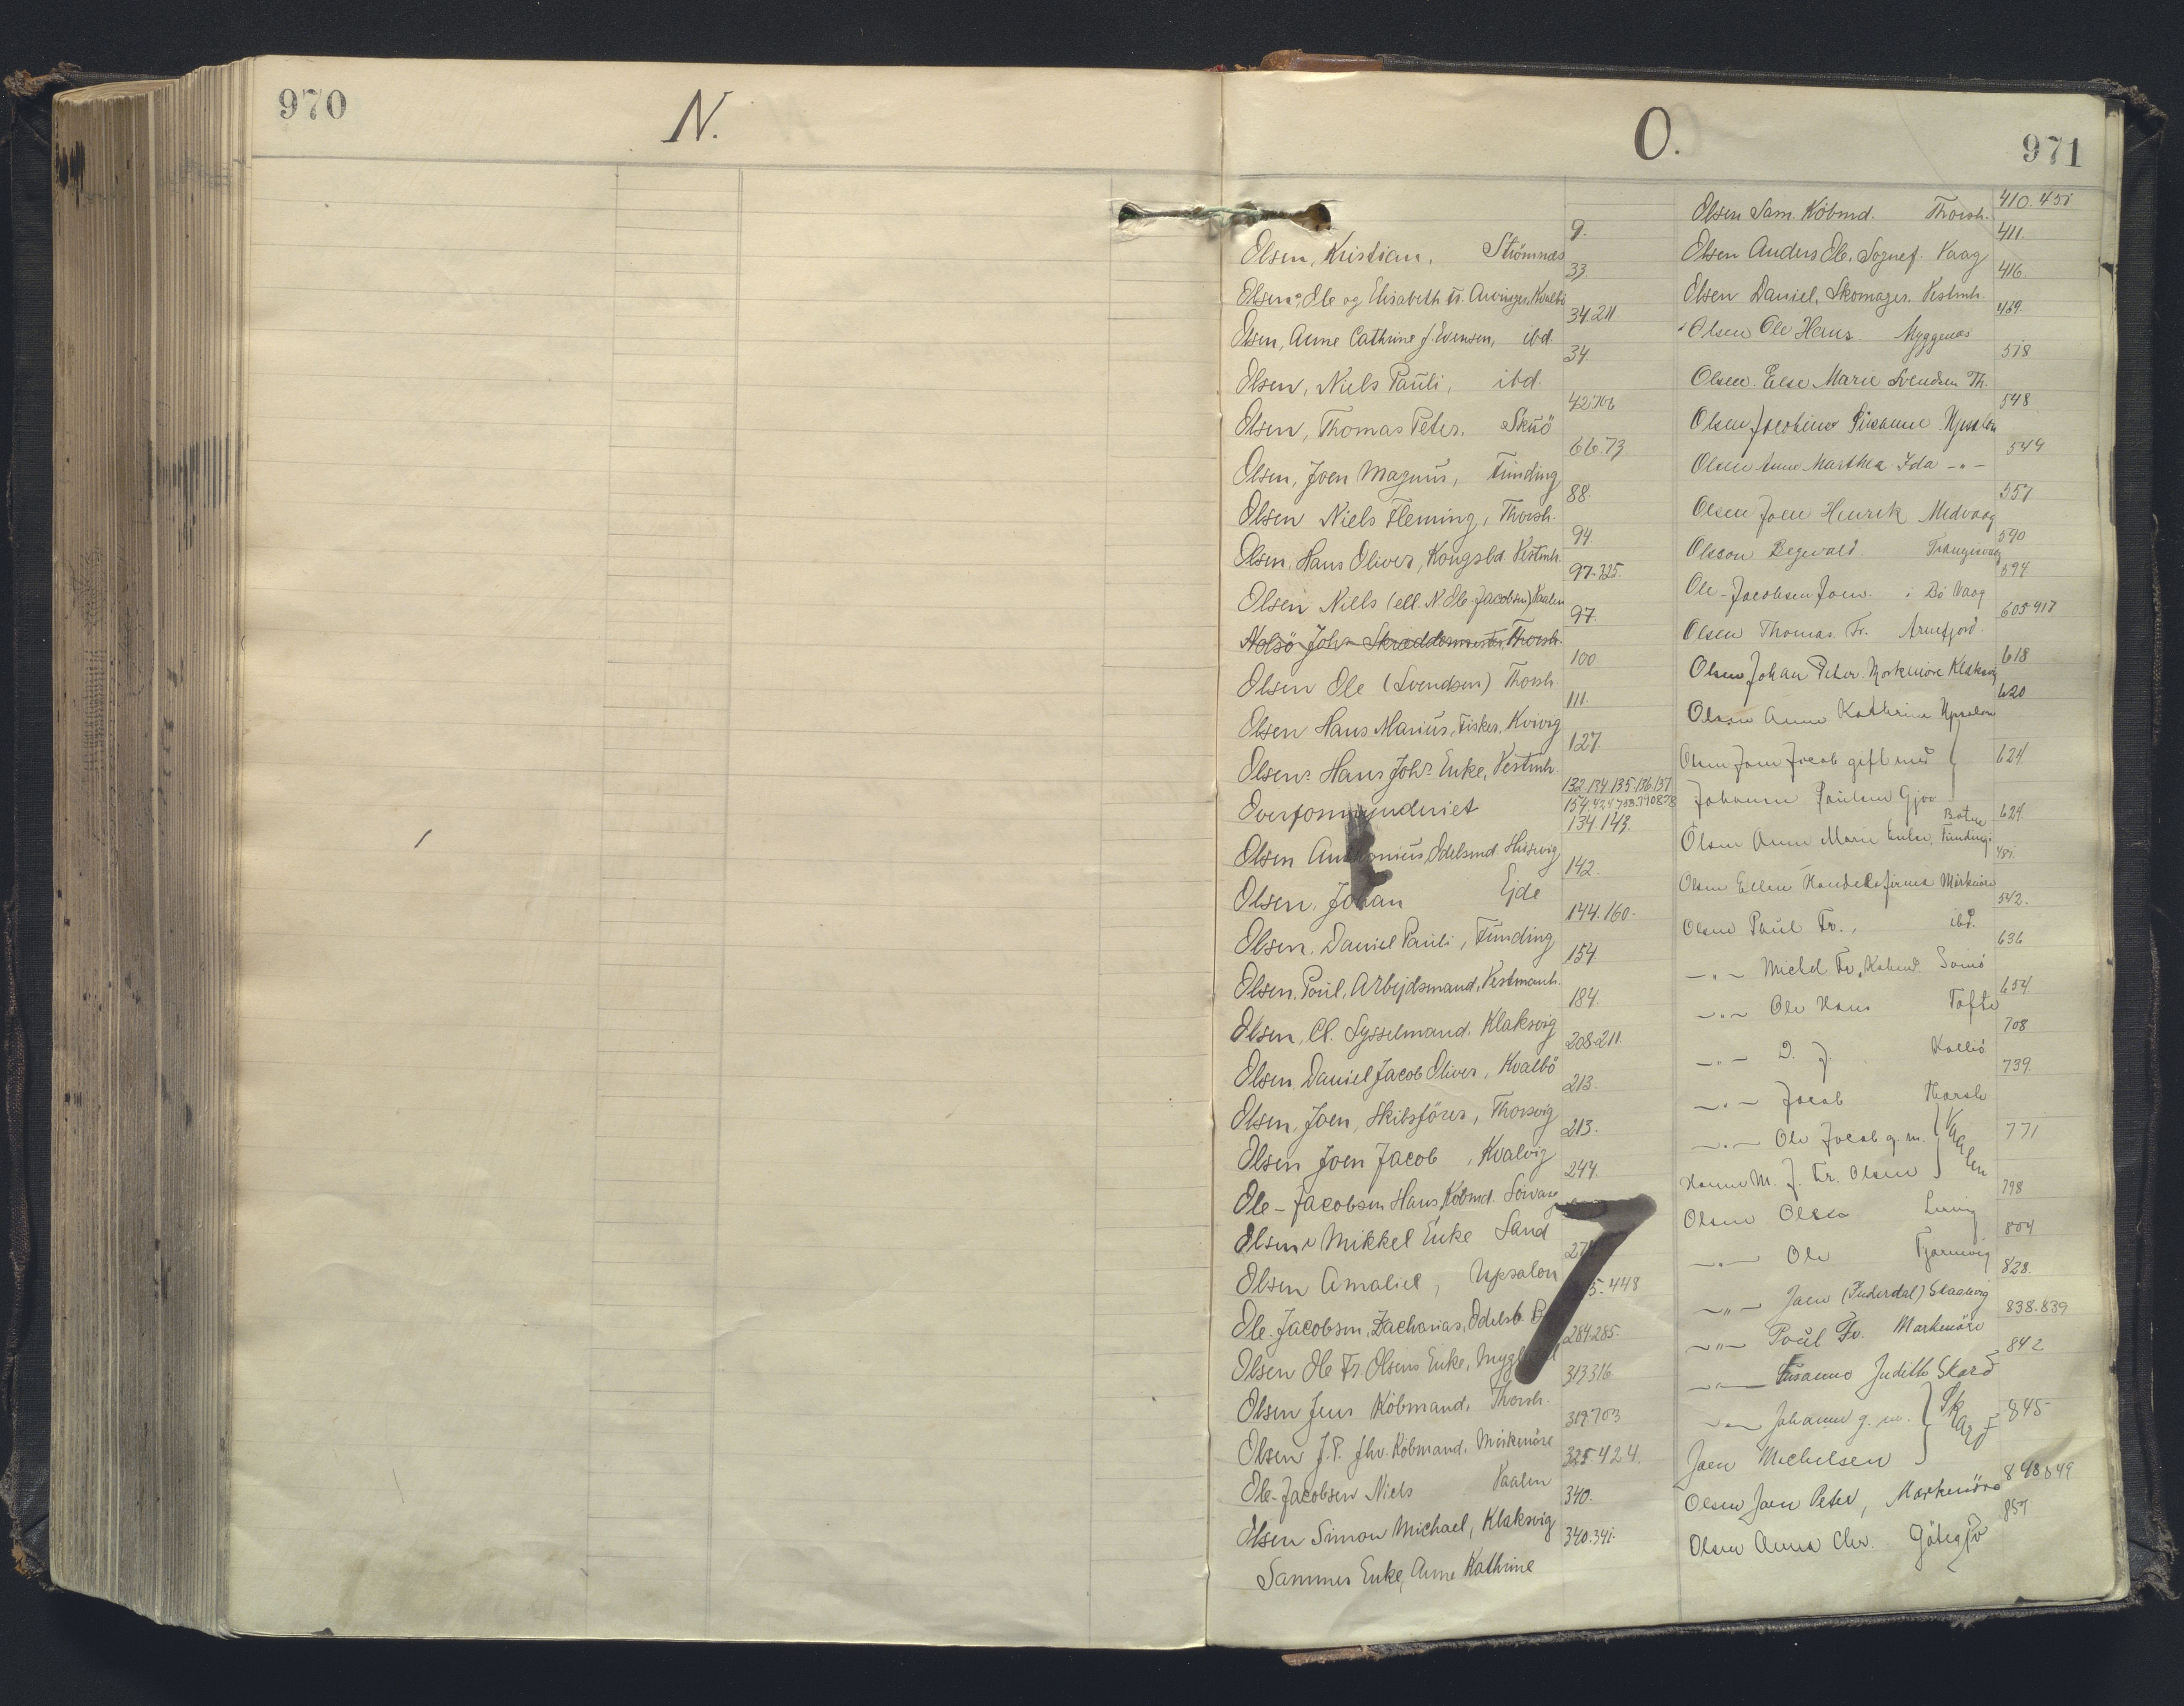 970
N.
O.
971
Olsen, Kristian, Strömnæs 9.
Olsens, Ole og Elisabeth Fr. Arvinger, Kvalbö 33
Olsen, Anne Cathrine f. Evensen, ibd. 34.211
Olsen, Niels Pauli, ibd. 34.
Olsen, Thomas Peter, Skuö 42
Olsen, Joen Magnus, Funding 66.73
Olsen Niels Fleming, Thorsh. 88.
Olsen, Hans Oliver, Kongsbd. Vestmh. 94.
Olsen Niels (ell. N. Ole-Jacobsen) Kaalen 97.325.
Nolsö Joh. Skræddermester, Thorsh. 97.
Olsen Ole (Svendsen) Thorsh. 100
Olsen Hans Marius, Fisker, Kvivig 111.
Olsens Hans Johs Enke, Vestmh. 127.
Overformynderiet 132.134.135.136.137
154.424.753.790.878
Olsen Anthonius, Odelsmd Husevig 134.143.
Olsen, Johan Ejde 142.
Olsen, Daniel Pauli, Funding 144.160.
Olsen, Poul, Arbejdsmand, Vestmanh. 154
Olsen, Cl. Sysselmand, Klaksvig 184.
Olsen, Daniel Jacob Oliver, Kvalbö 208.211.
Olsen, Joen, Skibsförer, Thorsvig 213.
Olsen Joen Jacob, Kvalvig 213.
Ole-Jacobsen Hans, Købmd. Sörvaag 244.
Olsens Mikkel Enke Sand
Olsen Amaliel, Upsalon 27
Ole-Jacobsen, Zacharias, Odelsb. 5.448
Olsen Ole Fr. Olsens Enke, 284.285.
Olsen Jens Købmand, Thorsh. 313.316
Olsen J. P. fhv. Købmand, Mirkenöre 319.703
Ole-Jacobsen Niels Kaalen 325.424.
Olsen Simon Michael, Klaksvig 340.
Sammes Enke, Anne Kathrine 340.341.
Olsen Sam. Købmd. Thorsh. 410.451
Olsen Anders Ole, Sognef. Vaag 411.
Olsen Daniel, Skomager, Vestmh. 416.
Olsen Ole Hans Myggenæs 469
Olsen Else Marie Svendsen Th. 518
Olsen Jacobine Susanne Upsalon 548
Olsen Anne Marthea Ida -"- 544
Olsen Joen Henrik Midvaag 557
Olsson Regevald Trangisvaag 590
Ole-Jacobsen Joen i Bö Vaag 594
Olsen Thomas Fr. Arnefjord 605.917
Olsen Johan Peter Norkenöre Klaksvig 618
Olsen Anna Kathrina Upsalon 620
Olsen Joen Jacob gift med } 624
Johanne Poulsen Gjov
Olsen Anne Marie Enke, Botne Funding 624
Olsen Ellen Handelsfirma Mirkenöre 481.
Olsen Poul Fr., ibd. 542.
-"- Michel Fr. Købmd Sumö 636
-"- Ole Hans Tofte 654
-"- D. J. Kolbö 708
-"- Jacob Thorsh 739.
-"- Ole Jacob g. m. } Kaalen 771
Hanne M. J. Fr. Olsen
Olsen Olea Lervig 798
-"- Ole Tjørnevig 804
-"- Joen (Inderdal) Skaalvig 828.
-"- Poul Fr. Mørkenöre 838.839
-"- Susanne Judith Skard 842
-"- Johanne g. m. } Skard 845
Joen Michelsen
Olsen Joen Peter, Mørkenöre 848.849
Olsen Anna Chr. Götegjov 857
7